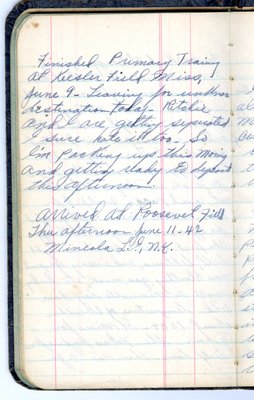 Finished Primary Traing
at Kesler Field Miss,
June 9 - Leaving for unknown
destination today - Ritchie
and I are getting seperated
I sure hate it too. So
I'm packing up this morning
and getting ready to depart
this afternoon
Arrived at Roosevelt Field
Thu afternoon June 11-42
Mineola L.I., N.Y.